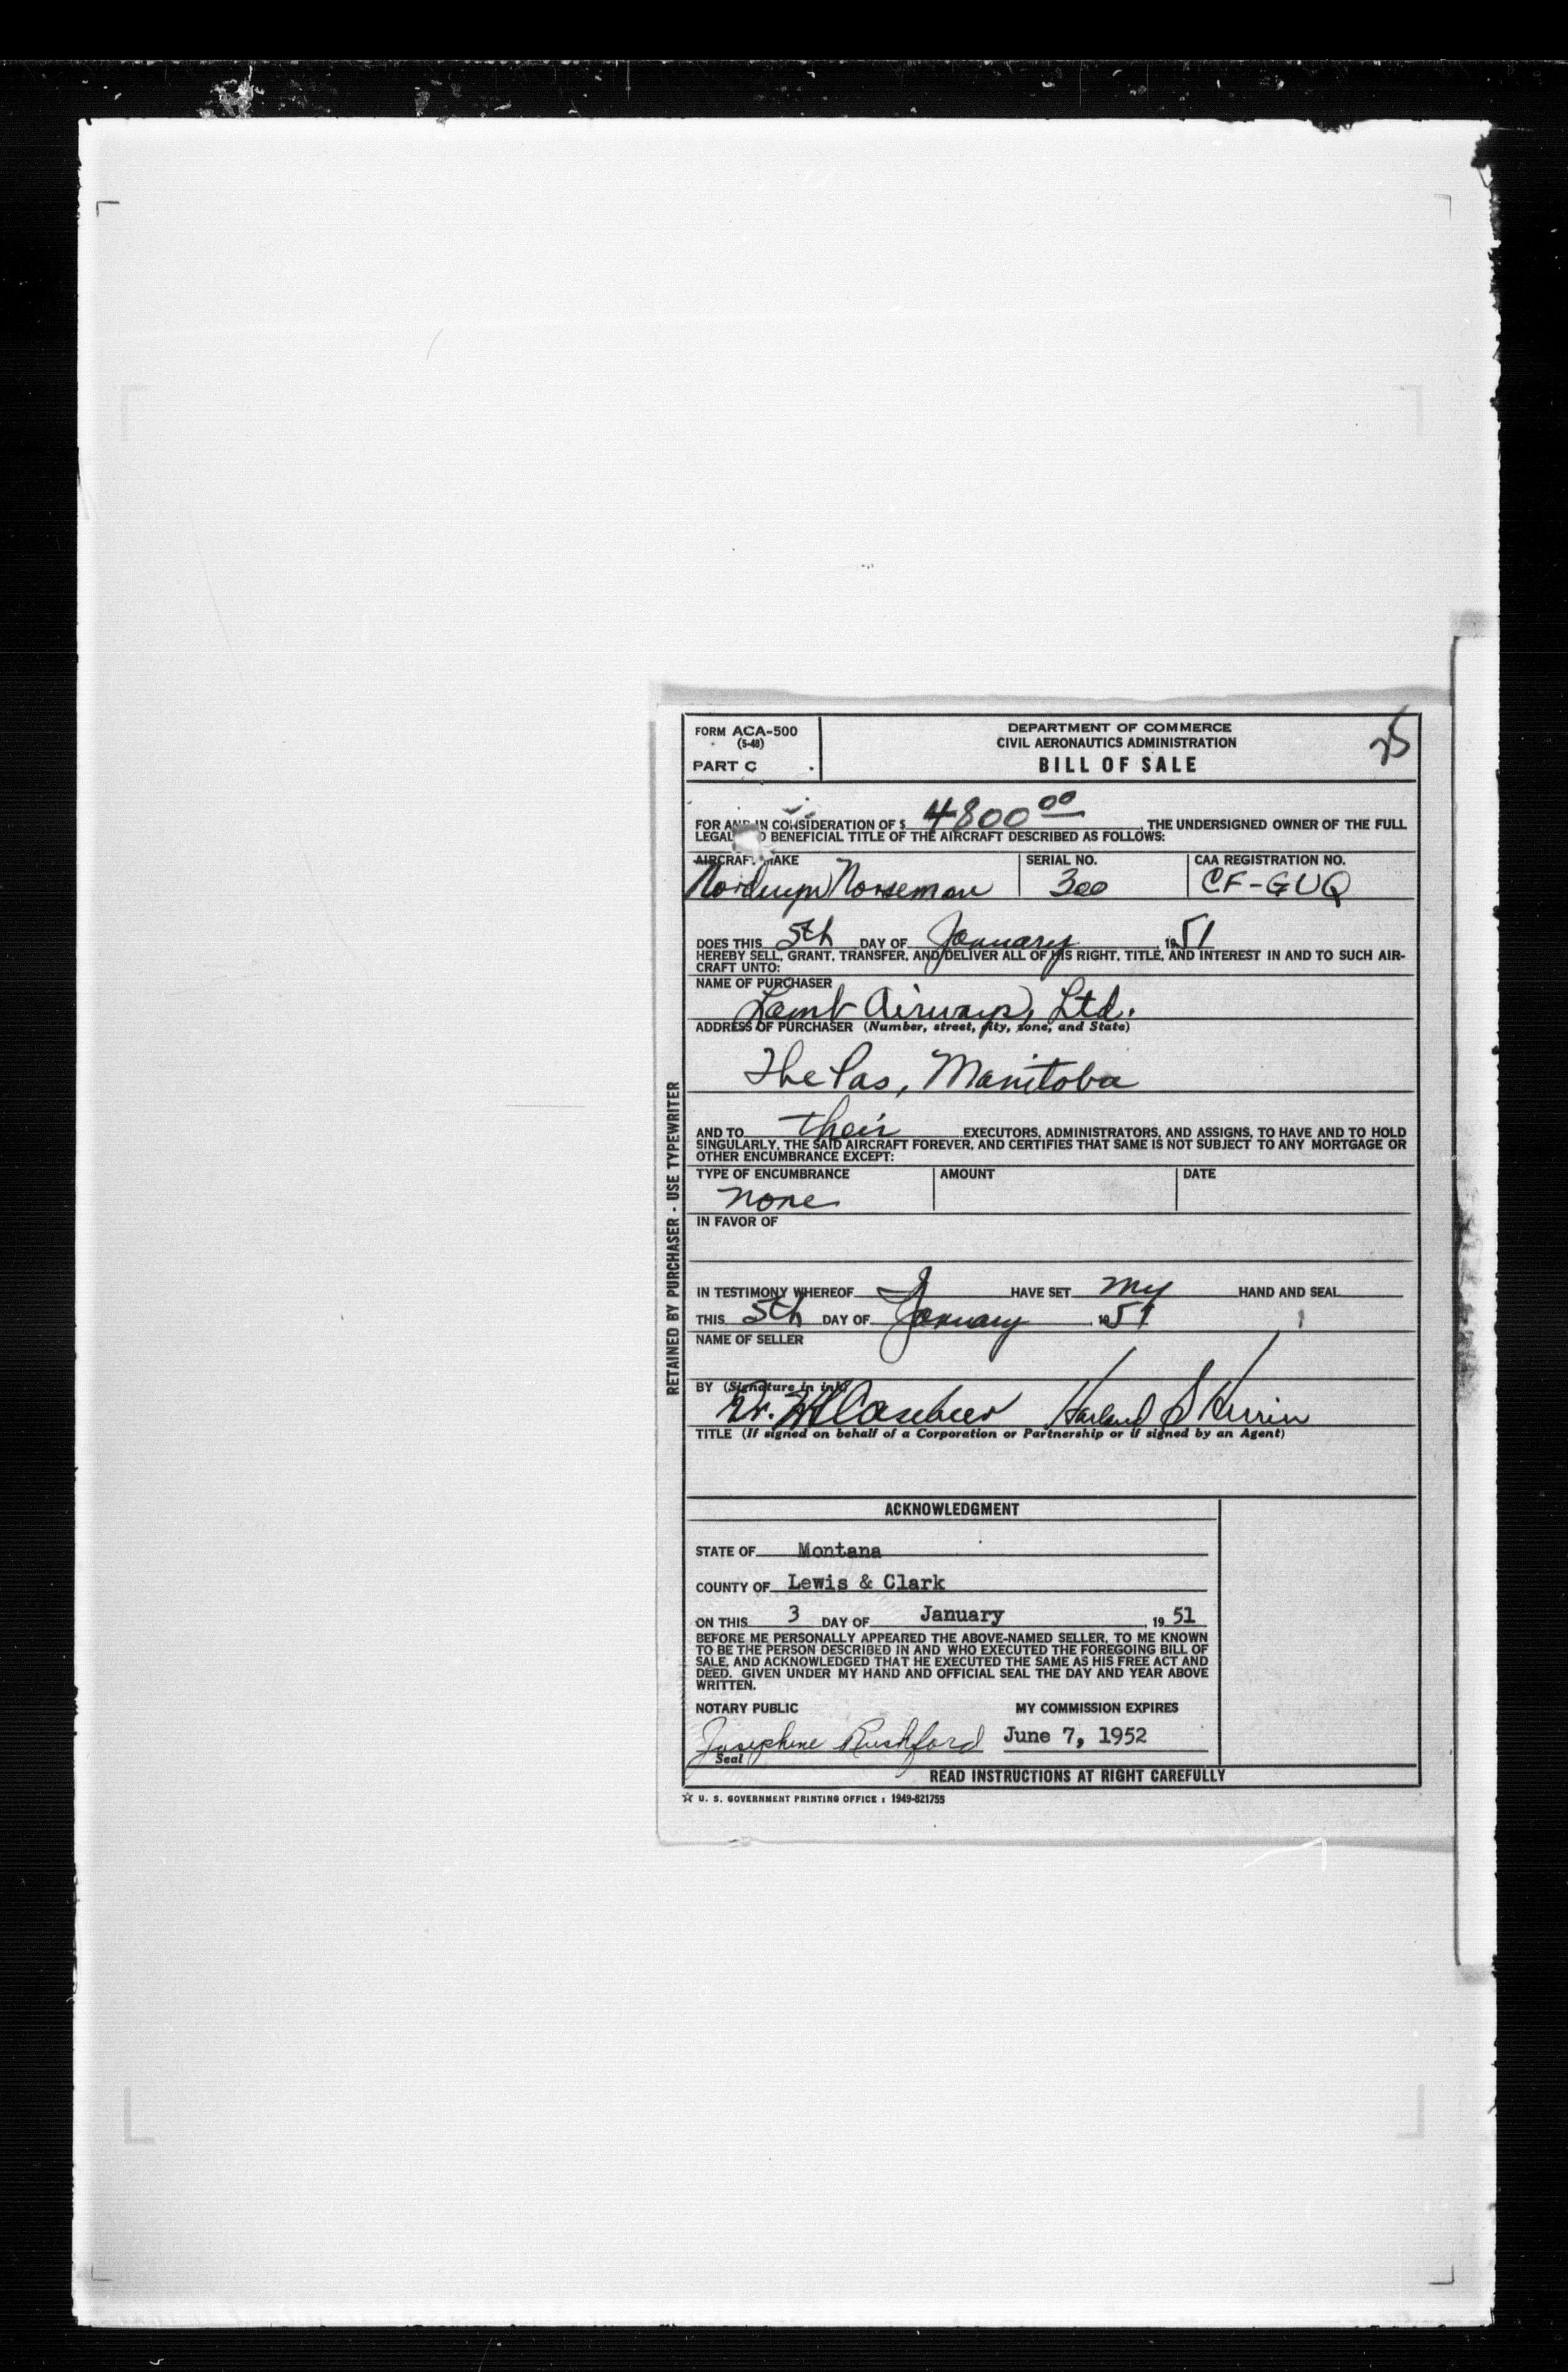 FORM ACA-500
(5-48)
PART C
DEPARTMENT OF COMMERCE
CIVIL AERONAUTICS ADMINISTRATION
BILL OF SALE
25
FOR AND IN CONSIDERATION OF $ 4800 00, THE UNDERSIGNED OWNER OF THE FULL
LEGAL AND BENEFICIAL TITLE OF THE AIRCRAFT DESCRIBED AS FOLLOWS:
AIRCRAFT MAKE SERIAL NO. CAA REGISTRATION NO.
Norduyn Norseman 300 CF-GUQ
DOES THIS 5th DAY OF January, 1951
HEREBY SELL, GRANT, TRANSFER, AND DELIVER ALL OF HIS RIGHT, TITLE, AND INTEREST IN AND TO SUCH AIR-
CRAFT UNTO:
NAME OF PURCHASER
Lamb Airways, Ltd.
ADDRESS OF PURCHASER (Number, street, city, zone, and State)
The Pas, Manitoba
AND TO their EXECUTORS, ADMINISTRATORS, AND ASSIGNS, TO HAVE AND TO HOLD
SINGULARLY, THE SAID AIRCRAFT FOREVER, AND CERTIFIES THAT SAME IS NOT SUBJECT TO ANY MORTGAGE OR
OTHER ENCUMBRANCE EXCEPT:
TYPE OF ENCUMBRANCE AMOUNT DATE
none
IN FAVOR OF
IN TESTIMONY WHEREOF I HAVE SET my HAND AND SEAL
THIS 5th DAY OF January, 1951
NAME OF SELLER
BY (Signature in ink)
Dr. Casebeer Harland S Herrin
TITLE (If signed on behalf of a Corporation or Partnership or if signed by an Agent)
ACKNOWLEDGMENT
STATE OF Montana
COUNTY OF Lewis & Clark
ON THIS 3 DAY OF January, 19 51
BEFORE ME PERSONALLY APPEARED THE ABOVE-NAMED SELLER, TO ME KNOWN
TO BE THE PERSON DESCRIBED IN AND WHO EXECUTED THE FOREGOING BILL OF
SALE, AND ACKNOWLEDGED THAT HE EXECUTED THE SAME AS HIS FREE ACT AND
DEED. GIVEN UNDER MY HAND AND OFFICIAL SEAL THE DAY AND YEAR ABOVE
WRITTEN.
NOTARY PUBLIC MY COMMISSION EXPIRES
Josephine Rushford June 7, 1952
Seal
READ INSTRUCTIONS AT RIGHT CAREFULLY
☆ U. S. GOVERNMENT PRINTING OFFICE : 1949-821755
RETAINED BY PURCHASER - USE TYPEWRITER